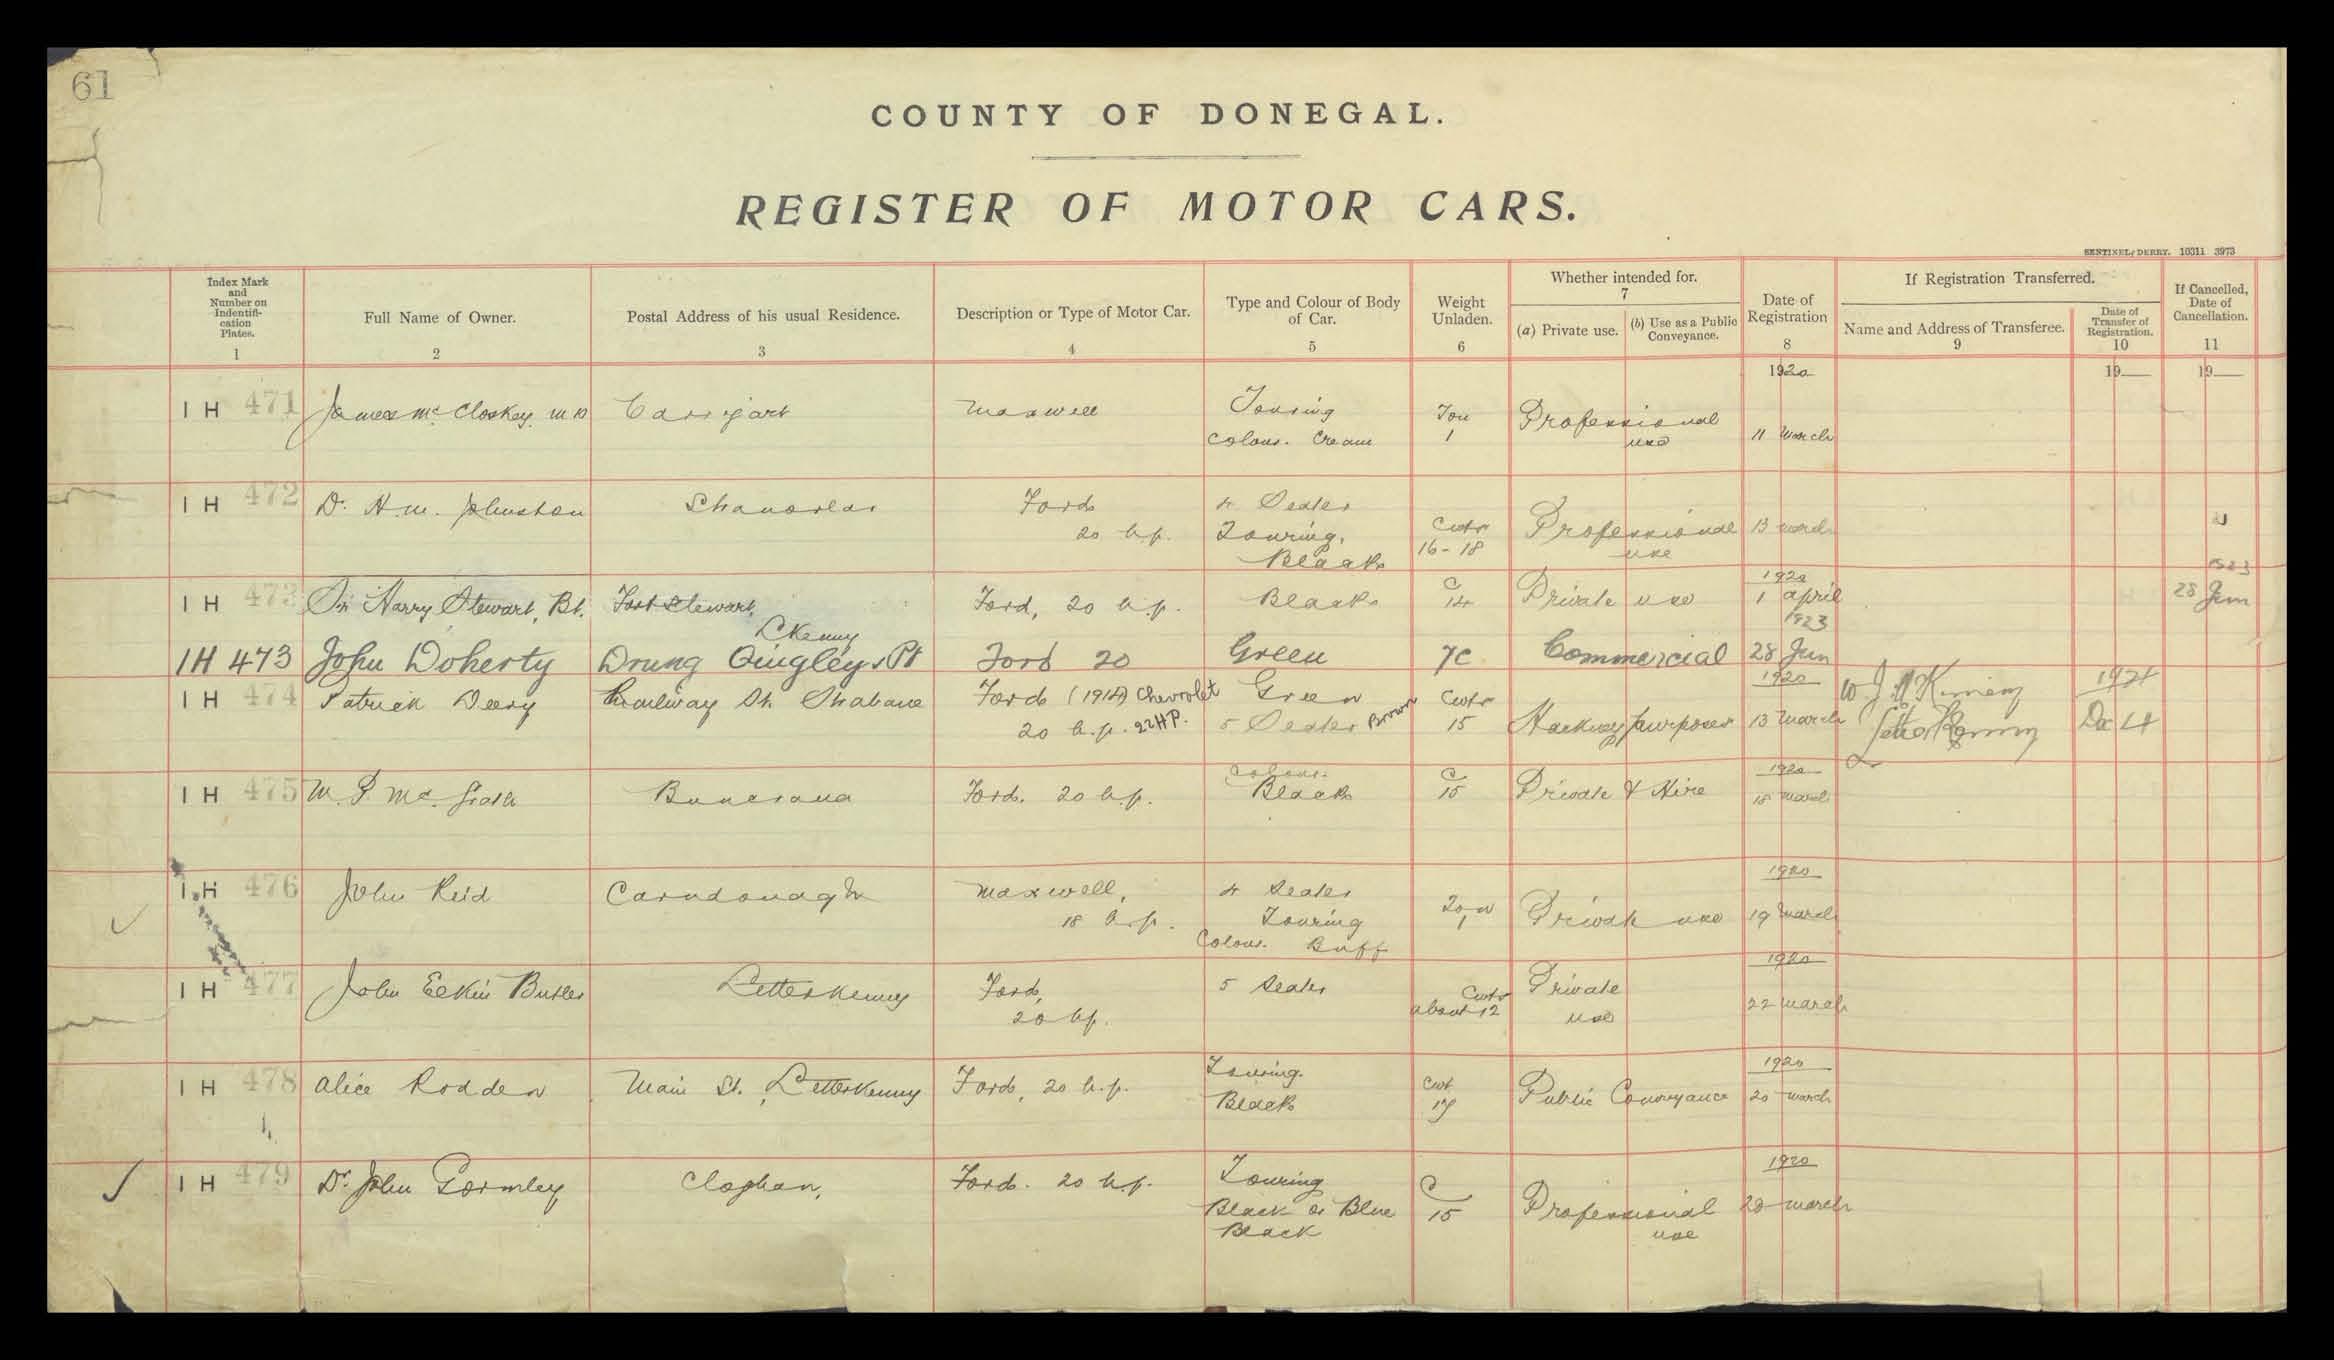 61
COUNTY OF DONEGAL.
REGISTER OF MOTOR CARS.
SENTINEL, DERRY. 10311 3973
Index Mark and Number on Indentifi-cation Plates.
1
Full Name of Owner.
2
Postal Address of his usual Residence.
3
Description or Type of Motor Car.
4
Type and Colour of Body of Car.
5
Weight Unladen.
6
Whether intended for.
7
(a) Private use.
(b) Use as a Public Conveyance.
Date of Registration
8
If Registration Transferred.
Name and Address of Transferee.
9
Date of Transfer of Registration.
10
If Cancelled, Date of Cancellation.
11
1920
19
19
IH 471 James Mc Closkey. M.D Carrigart Maxwell Touring Ton Professional
Colour. Cream 1 use 11 March
IH 472 Dr. H.M. Johnston Ford 4 Seater
20 h.p. Touring. Cwts Professional 13 March
Black 16-18 use
1920 1923
IH 473 Sir Harry Stewart, Bt. Fort Stewart, Ford, 20 h.p. Black C 14 Private use 1 April 28 Jun
LKenny 1923
IH 473 John Doherty Drung Quigley's Pt Ford 20 Green 7c Commercial 28 Jun
1920 1921
IH 474 Patrick Deery Railway St. Strabane Ford (1914) Chevrolet Green Cwts W. J.
20 h.p. 22HP. 5 Seater Brown 15 Hackney purposes 13 March Dec 14
Colour. 1920
IH 475 M. Mc. Grath Buncrana Ford. 20 h.p. Black C 15 Private & Hire 15 March
1920
IH 476 John Reid Carndonagh Maxwell, 4 Seater
18 h.p. Touring Ton 1 Private use 19 March
Colour. Buff
1920
IH 477 John Eekin Butler Letterkenny Ford, 5 Seater Cwts Private
20 hp. about 12 use 22 March
1920
IH 478 Alice Rodden Main St., Letterkenny Ford, 20 h.p. Touring. Cwt Public Conveyance 20 March
Black 17
1920
IH 479 Dr. John Gormley Cloghan, Ford. 20 h.p. Touring C
Black or Blue 15 Professional March
Black use